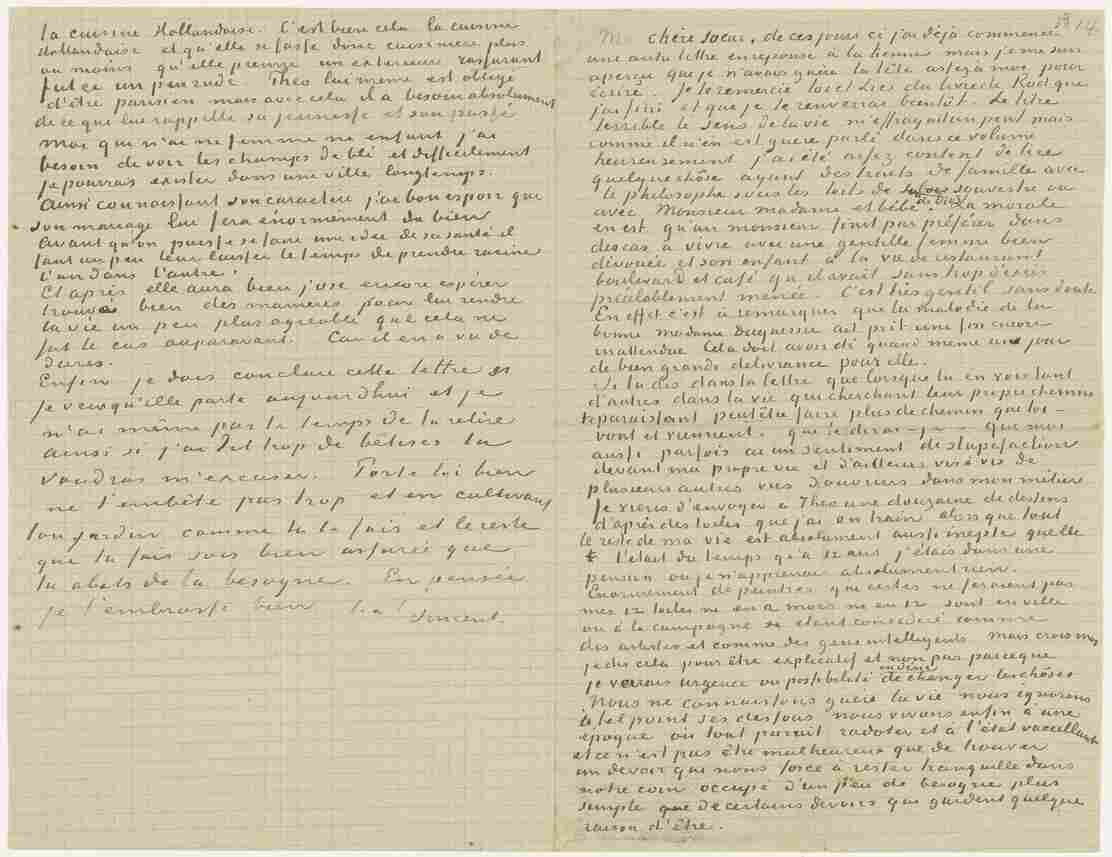 la cuisine Hollandaise. C'est bien cela la cuisine
Hollandaise et qu'elle se fasse donc cuisiniere plus
ou moins qu'elle prenne un exterieur rassurant
fut ce un peu rude. Theo lui meme est obligé
d'être parisien mais avec cela il a besoin absolument
de ce qui lui rappelle sa jeunesse et son passé
moi qui n'ai ni femme ni enfant j'ai
besoin de voir les champs de blé et difficilement
je pourrais exister dans une ville longtemps.
Ainsi connaissant son caractère j'ai bon espoir que
son mariage lui fera énormément de bien
Avant qu'on puisse se faire une idée de sa santé il
faut un peu leur laisser le temps de prendre racine
l'un dans l'autre.
Et après elle aura bien j'ose encore espérer
trouvé bien des manieres pour lui rendre
la vie un peu plus agréable que cela ne
fut le cas auparavant. Car il en a vu de
dures.
Enfin je dois conclure cette lettre si
je veux qu'elle parte aujourd'hui et je
n'ai même pas le temps de la relire
ainsi si j'ai dit trop de bêtises tu
voudras m'excuser. Porte toi bien
ne t'embête pas trop et en cultivant
ton jardin comme tu le fais et le reste
que tu fais sois bien assurée que
tu abats de la besogne. En pensée
je t'embrasse bien
Vincent.
14
chère soeur, de ces jours ci j'ai déjà commencé
une autre lettre en reponse à la tienne mais je me suis
aperçu que je n'avais guère la tête assez à moi pour
écrire. Je te remercie toi et Lies du livre de Rod que
j'ai fini et que je te renverrai bientôt. Le titre
terrible le sens de la vie m'effrayait un peu mais
comme il n'en est guère parlé dans ce volume
heureusement j'ai été assez content de lire
quelque chôse ayant des traits de famille avec
le philosophe sous les toits de Souvestre ou
avec Monsieur madame et bébé de Droz. La morale
en est qu'un monsieur finit par préférer dans
des cas à vivre avec une gentille femme bien
dévouée et son enfant à la vie de restaurant
boulevard et café qu'il avait sans trop d'excès
préalablement menée. C'est très gentil sans doute
En effet c'est à remarquer que la maladie de la
bonne madame Duquesne ait pris une fin encore
inattendue Cela doit avoir été quand meme un jour
de bien grande délivrance pour elle.
Si tu dis dans ta lettre que lorsque tu en vois tant
d'autres dans la vie qui cherchant leur propre chemin
te paraissant peutêtre faire plus de chemin que toi –
vont et viennent. que te dirai-je – que moi
aussi parfois ai un sentiment de stupéfaction
devant ma propre vie et d'ailleurs vis à vis de
plusieurs autres vies d'ouvriers dans mon métier
Je viens d'envoyer à Theo une douzaine de dessins
d'après des toiles que j'ai en train alors que tout
le reste de ma vie est absolument aussi inepte qu'elle
l'était du temps qu'à 12 ans j'étais dans une
pension où je n'apprenais absolument rien.
Enormément de peintres qui certes ne feraient pas
mes 12 toiles ni en 2 mois ni en 12 sont en ville
ou à la campagne se étant considéré comme
des artistes et comme des gens intelligents. mais crois moi
je dis cela pour être explicatif et non pas parceque
je verrais urgence ou possibilité ou envie de changer les chôses
Nous ne connaissons guère la vie nous ignorons
à tel point ses dessous nous vivons enfin à une
époque où tout parait radoter et à l'état vacillant
et ce n'est pas être malheureux que de trouver
un devoir qui nous force à rester tranquille dans
notre coin occupé d'un peu de besogne plus
simple que de certains devoirs qui gardent quelque
raison d'être.